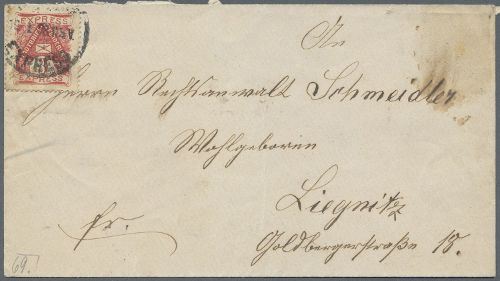 EXPRESS
EXPRESS
An
Herrn Rechtsanwalt Schmeidler
Wohlgeboren
Liegnitz
fr.
Goldbergerstraße 18.
69.